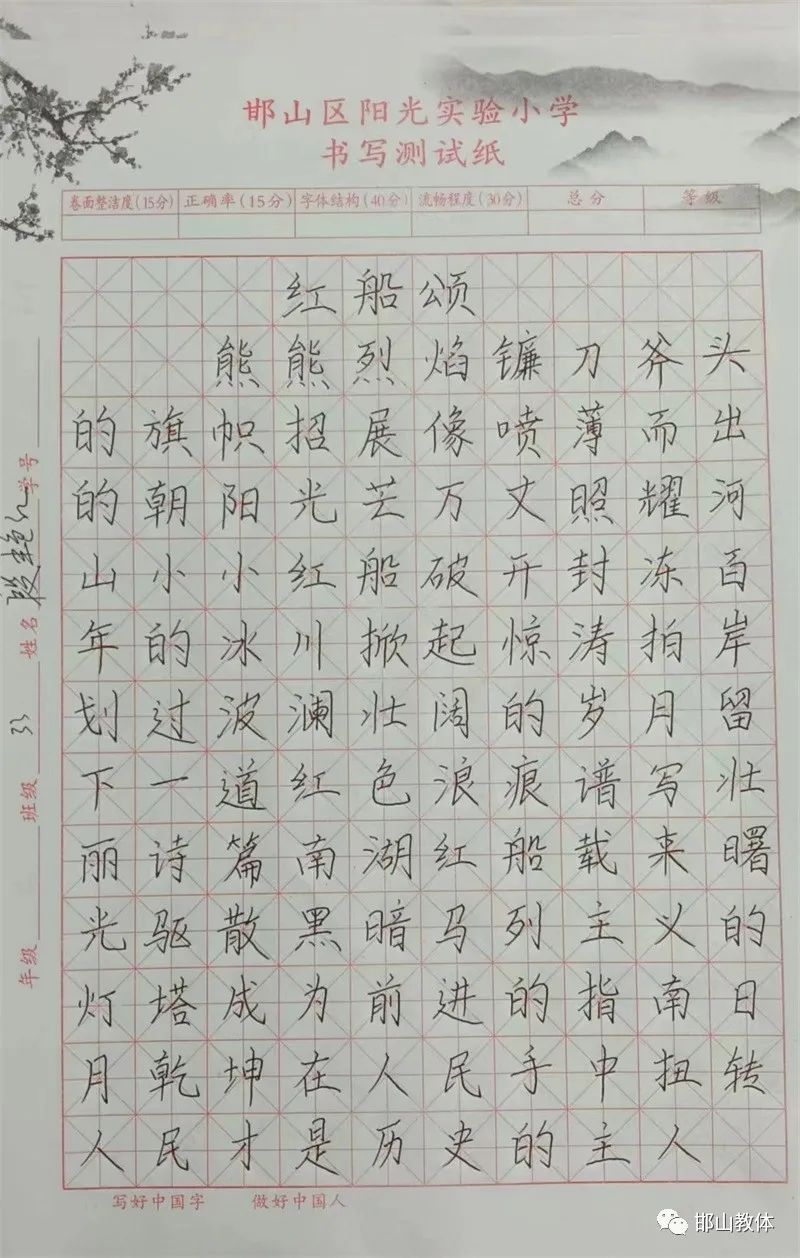 邯山区阳光实验小学
书写测试纸
卷面整洁度(15分) 正确率(15分) 字体结构(40分) 流畅程度(30分) 总分 等级
红船颂
熊熊烈焰镰刀斧头
的旗帜招展像喷薄而出
的朝阳光芒万丈照耀河
山小小红船破开封冻百
年的冰川掀起惊涛拍岸
划过波澜壮阔的岁月留
下一道红色浪痕谱写壮
丽诗篇南湖红船载来曙
光驱散黑暗马列主义的
灯塔成为前进的指南日
月乾坤在人民手中扭转
人民才是历史的主人
年级 班级 33 姓名 学号
写好中国字 做好中国人
邯山教体